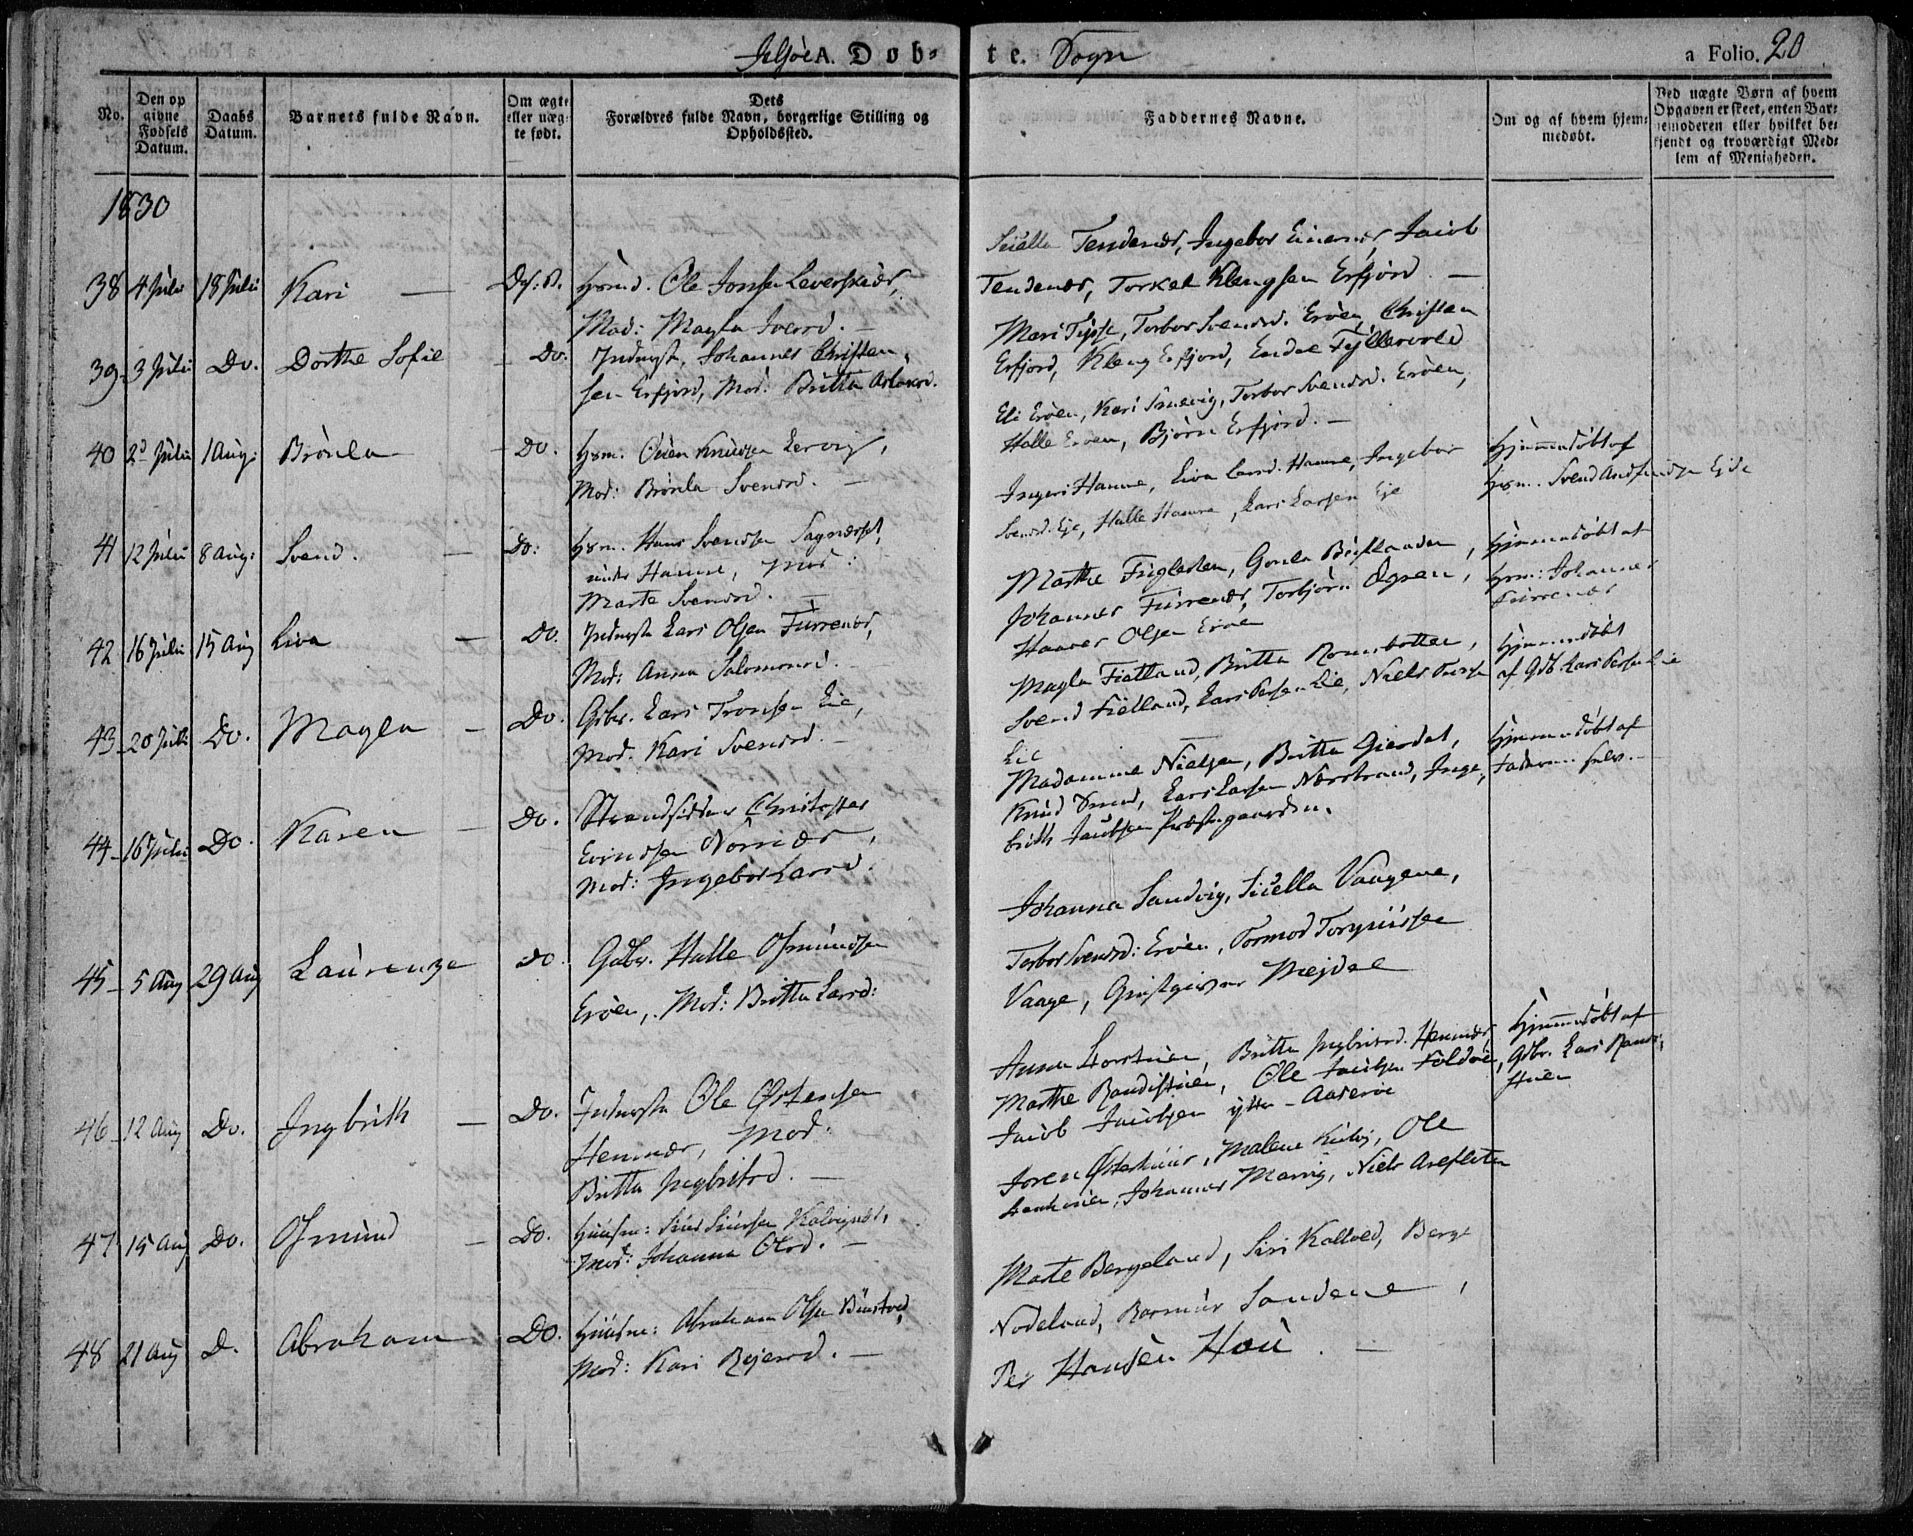 Jelsøe A. Døb- te. Sogn
a Folio. 20
No.
Den op givne Fødsels Datum.
Daabs Datum.
Barnets fulde Navn.
Om ægte eller uæg- te født.
Dets Forældres fulde Navn, borgerlige Stilling og Opholdssted.
Faddernes Navne.
Om og af hvem hjem- medøbt.
Ved uægte Børn af hvem Opgaven er skeet, enten Bar- nemoderen eller hvilket be- kjendt og troværdigt Med- lem af Menigheden.
1830
38 4 Juli 18 Juli Kari —
Hsmd. Ole Jonsen Leverskiær,
Mod: Magla Iversd. —
Siella Tendenær, Ingebor Einernær, Jacob
Tendenær, Torkel Klengsen Erfjord. —
39 3 Juli Do. Dorthe Sofie — Do.
Indergst. Johannes Christen-
sen Erfjord, Mod: Britta Aslaksd.
Mari Tysse, Torbor Svendsd. Erøen, Christen
Erfjord, Kleng Erfjord, Endre Fyllesvold
40 2d Juli 1 Aug: Brønla — Do.
Hsm. Ouen Knudsen Lervig,
Mod: Brønla Svendsd. —
Eli Erøen, Kari Sandvig, Torbor Svendsd. Erøen,
Halle Erøen, Bjørn Erfjord. —
Hjemmedøbt af
Hsm. Svend Eide
41 12 Juli 8 Aug: Svend. — Do:
Hsm. Hans Svendsen Sagnæsset,
under Hamre, Mod:
Marte Svendsd. —
Ingeri Hamre, Liva Larsd. Hamre, Ingebor
Svendsd. Eje, Halle Hamre, Lars Larsen Eje
Hjemmedøbt af
Hsm: Johannes
Furrenær
42 16 Juli 15 Aug Liva — Do.
Indergst Lars Olsen Furrenær,
Mod: Anna Salomonsd. —
Marthe Fuglesten, Gonla Bøjlanden,
Johannes Furrenær, Torbjørn Ognen,
Haaver Olsen Erøe
Hjemmedøbt
af Gdb. Lars Persen Lie
43 20 Juli Do. Magla — Do.
Gdbr. Lars Tronsen Lie,
Mod. Kari Svendsd. —
Magla Fietland, Britta Romsbotten,
Svend Fielland, Lars Persen Lie, Niels Persen
Lie
Hjemmedøbt af
Faderen selv. —
44 16 Juli Do Karen — Do.
Strandsidder Christopher
Evindsen Nornær,
Mod: Ingebor Larsd.
Madamme Nielsen, Britta Gierdal,
Knud Sand, Lars Larsen Nærstrand, Inge-
brith Jacobsen Præstegaarden.
45 5 Aug 29 Aug Laurenze Do.
Gdbr. Halle Osmundsen
Erøen, Mod: Britta Larsd:
Johanna Sandvig, Sicella Vaagene,
Torbor Svendsd: Erøen, Tormod Torgiussen
Vaage, Giestgiver Mejdal
46 12 Aug Do. Ingbrith — Do.
Indergst Ole Østensen
Hennær, Mod:
Britta Ingbritsd. —
Anna Lorstuen, Britta Ingbritsd. Hennær
Marthe Randistuen, Ole Jacobsen Foldøe,
Jacob Jacobsen ytte-Aaserøe
Hjemmedøbt af
Gdbr. Lars Randi-
stuen
47 15 Aug Do. Osmund — Do.
Huusm: Siur Siursen Kalvignes,
Mod: Johanna Olsd. —
Joren Østerhuus, Malene Kilvig, Ole
Johannes Marvig, Niels Areflaten
48 21 Aug D. Abraham Do.
Huusm: Abraham Olsen Buestød,
Mod: Kari Rejersd. —
Marte Bergeland, Siri Kallold, Berge
Nodeland, Rasmus Sandene,
Per Hansen Hou. —